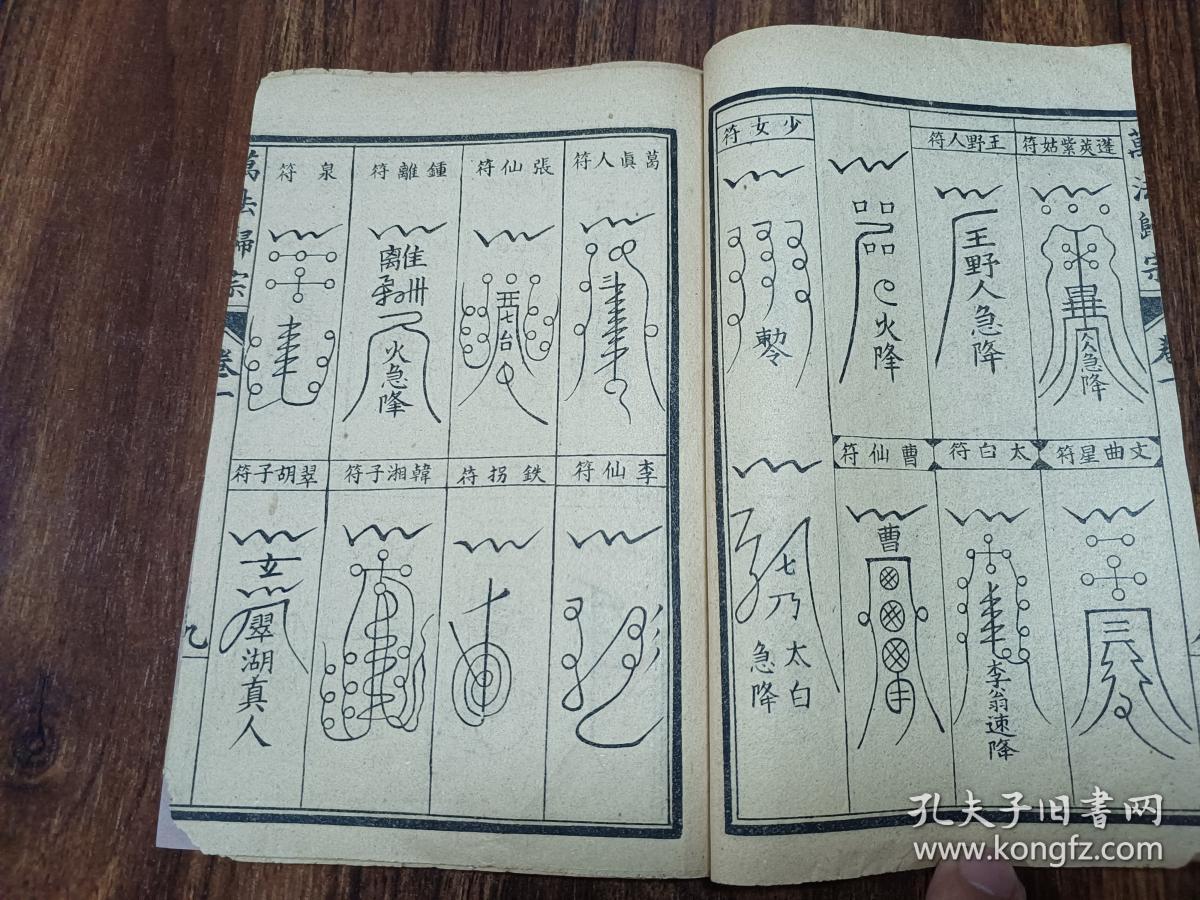 萬法歸宗
卷一
蓬萊紫姑符
內急降
王野人符
王野人急降
火降
少女符
文曲星符
太白符
李翁速降
曹仙符
曹
七乃
太白
急降
葛真人符
張仙符
七台
鍾離符
離
火急降
泉符
李仙符
鉄拐符
韓湘子符
翠胡子符
玄
翠湖真人
萬法歸宗
卷一
九
孔夫子旧书网
www.kongfz.com